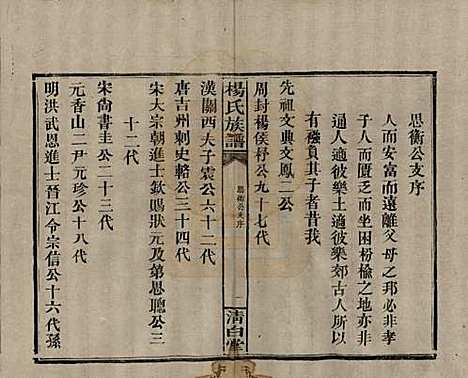 思衡公支序
人而安富而遠離父母之邦必非孝
子於人而匱乏而坐困枌榆之地亦非
通人適彼樂土適彼樂郊古人所以
有襁負其子者昔我
先祖文典文鳳二公
周封楊侯杼公九十七代
楊氏族譜
思衡公支序
一
清白堂
漢關西夫子震公六十二代
唐吉州刺史輅公三十四代
宋太宗朝進士欽賜狀元及第恩聰公三
十二代
宋尚書圭公二十三代
元香山二尹元珍公十八代
明洪武恩進士晉江令宗信公十六代孫